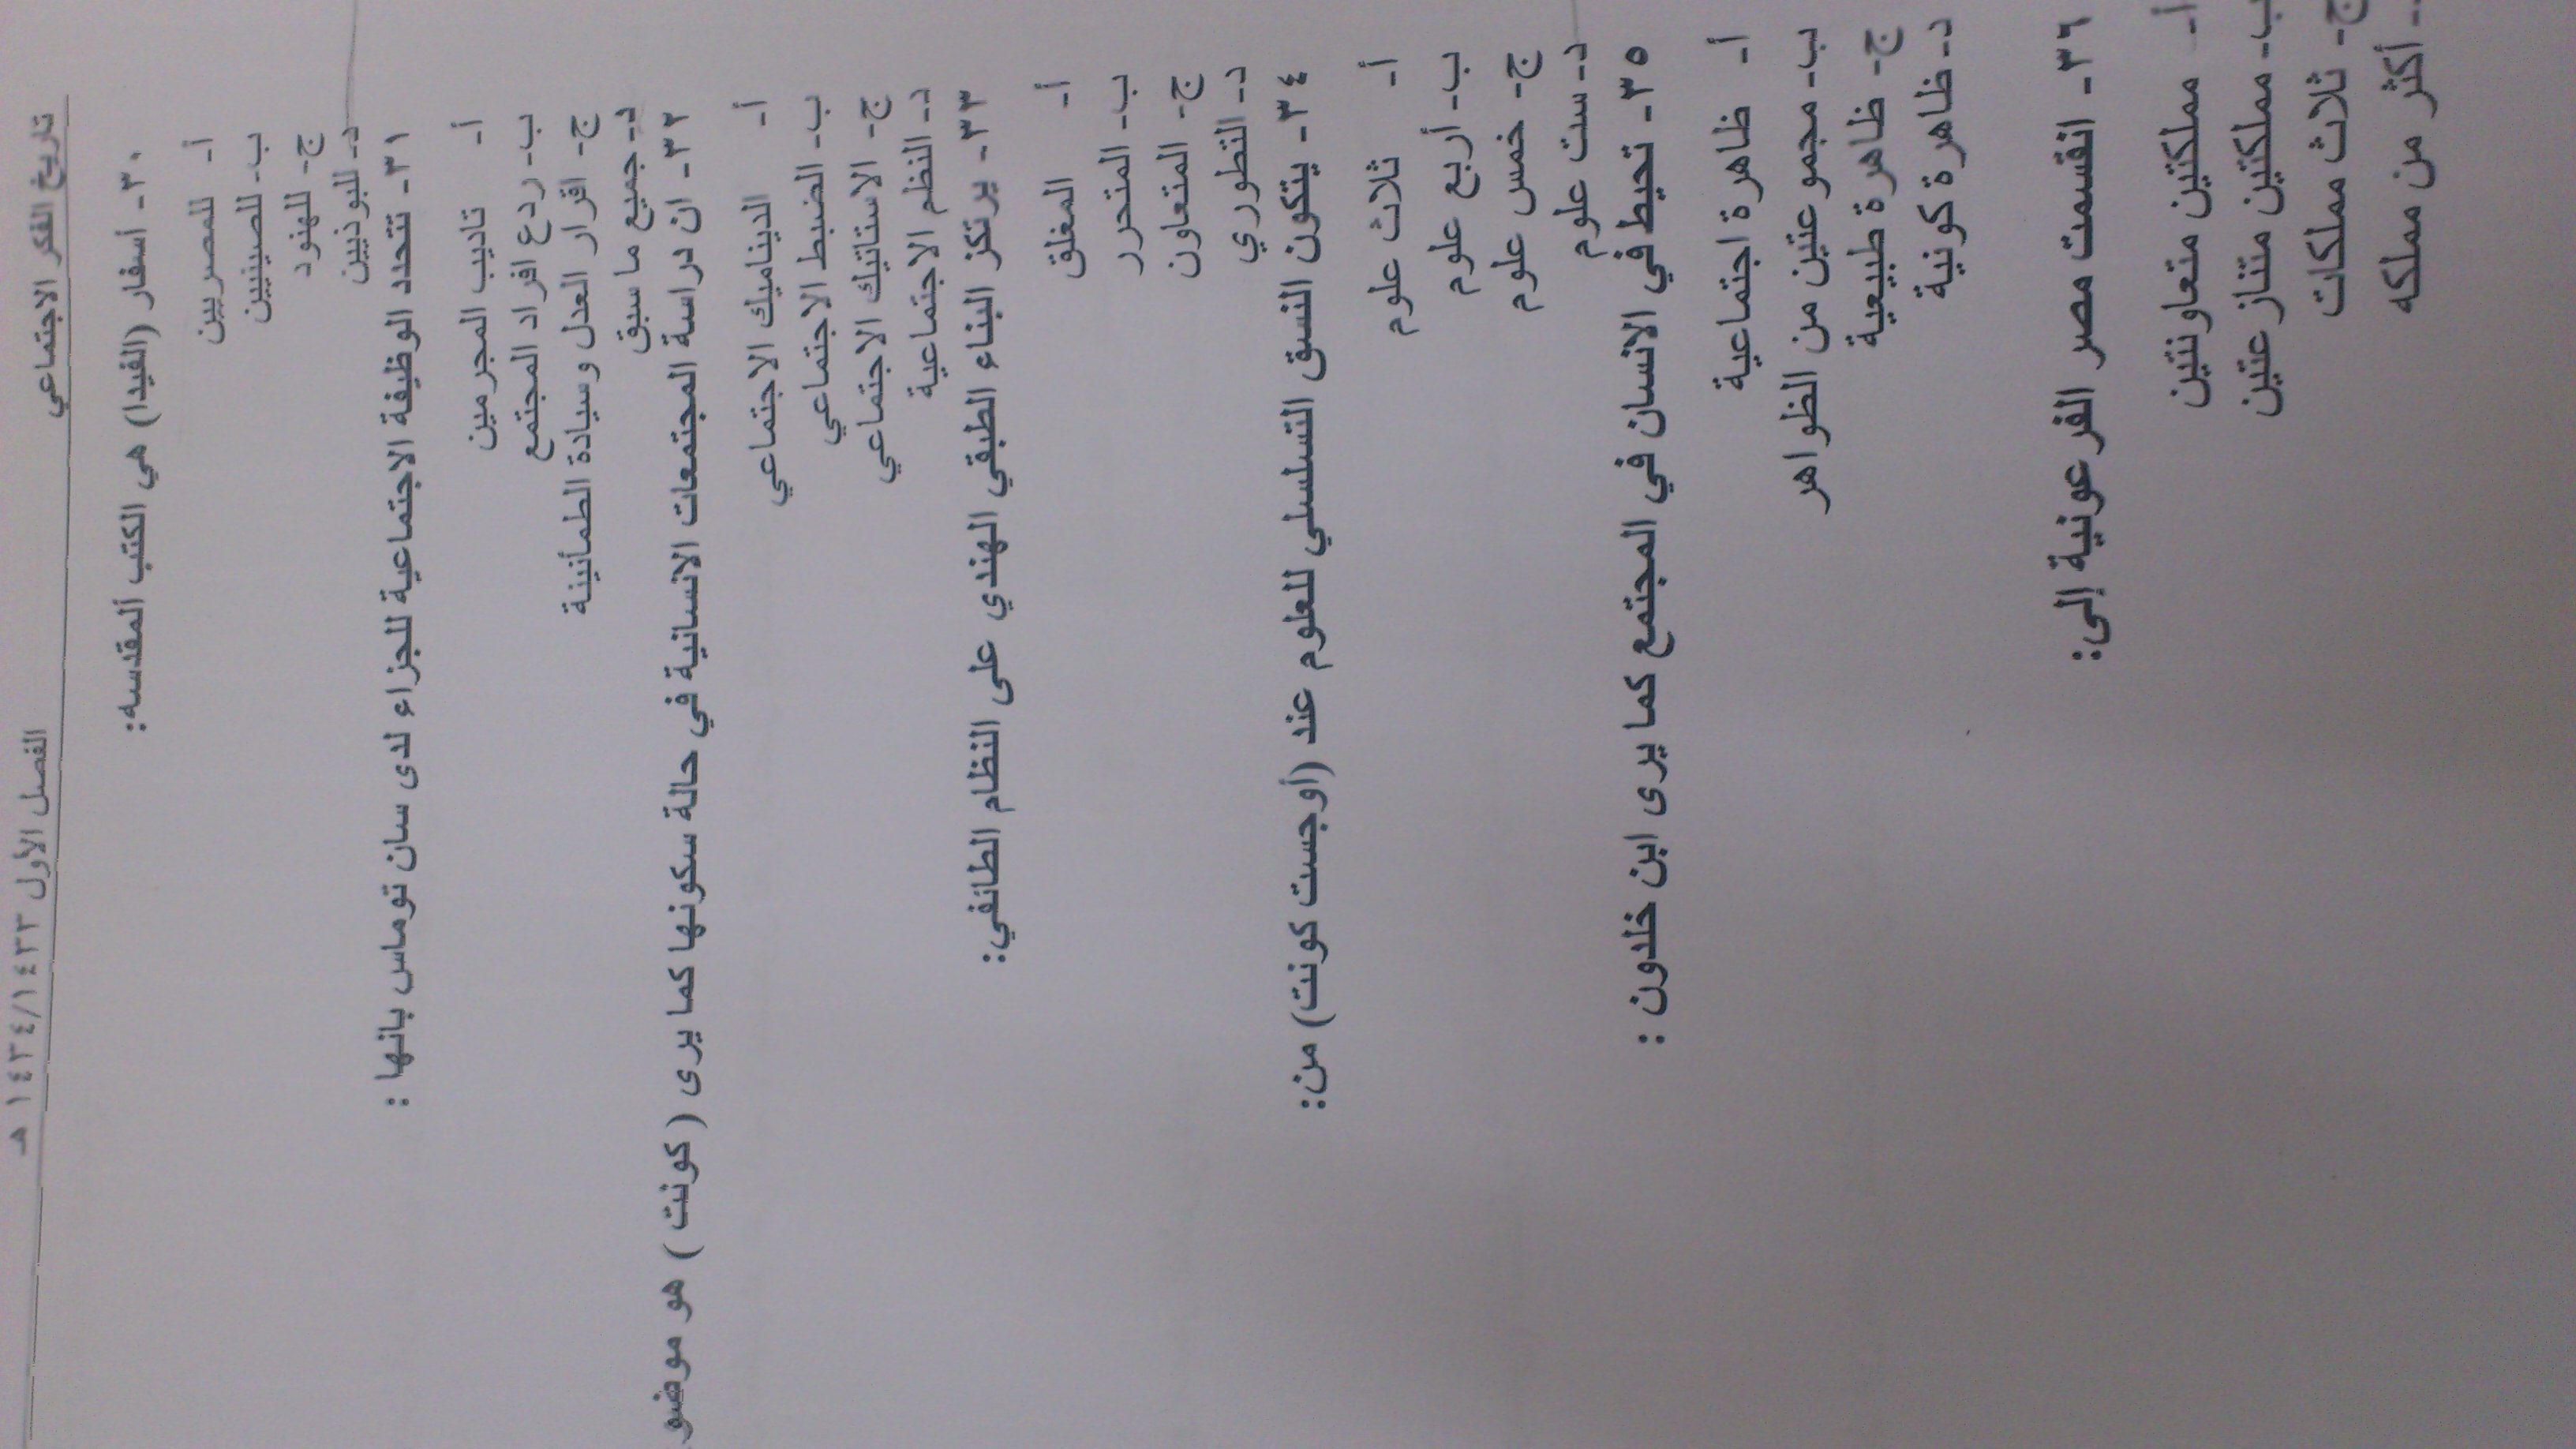 تاريخ الفكر الاجتماعي الفصل الأول ١٤٣٤/١٤٣٣ هـ
٣٠- أسفار (الفيدا) هي الكتب المقدسه:
أ- للمصريين
ب- للصينيين
ج- للهنود
د- للبوذيين
٣١- تتحدد الوظيفة الاجتماعية للجزاء لدى سان توماس بانها :
أ- تاديب المجرمين
ب- ردع افراد المجتمع
ج- اقرار العدل وسيادة الطمأنينة
د- جميع ما سبق
٣٢- ان دراسة المجتمعات الانسانية في حالة سكونها كما يرى ( كونت ) هو
أ- الديناميك الاجتماعي
ب- الضبط الاجتماعي
ج- الاستاتيك الاجتماعي
د- النظم الاجتماعية
٣٣- يرتكز البناء الطبقي الهندي على النظام الطائفي:
أ- المغلق
ب- المتحرر
ج- المتعاون
د- التطوري
٣٤- يتكون النسق التسلسلي للعلوم عند (أوجست كونت) من:
أ- ثلاث علوم
ب- أربع علوم
ج- خمس علوم
د- ست علوم
٣٥- تحيط في الانسان في المجتمع كما يرى ابن خلدون :
أ- ظاهرة اجتماعية
ب- مجموعتين من الظواهر
ج- ظاهرة طبيعية
د- ظاهرة كونية
٣٦- انقسمت مصر الفرعونية إلى:
أ- مملكتين متعاونتين
ب- مملكتين متنازعتين
ج- ثلاث مملكات
أكثر من مملكه